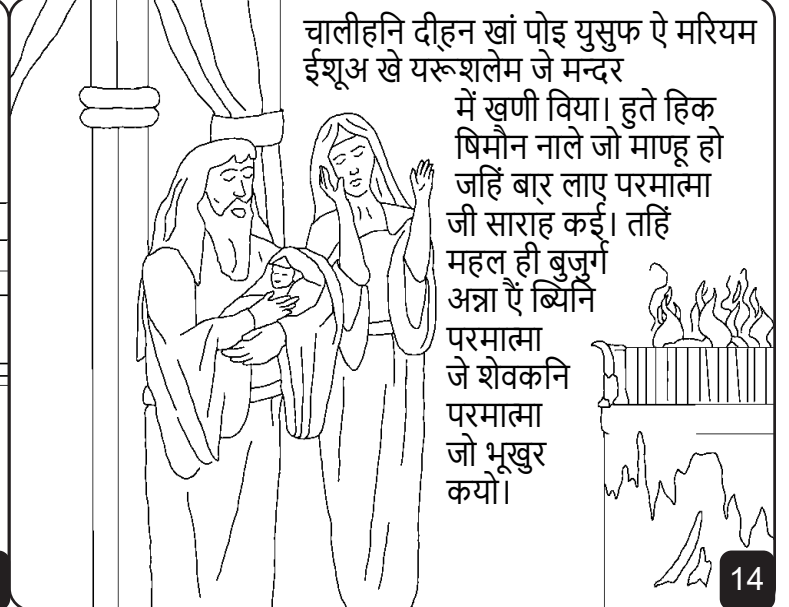 चालीहनि दीह्न खां पोइ युसुफ ऐ मरियम
ईशूअ खे यरूशलेम जे मन्दर
में खणी विया। हुते हिक
षिमौन नाले जो माण्हू हो
जहिं बार् लाए परमात्मा
जी साराह कई। तहिं
महल ही बुजुर्ग
अन्ना एैं ब्यिनि
परमात्मा
जे शेवकनि
परमात्मा
जो भूखुर
कयो।
14